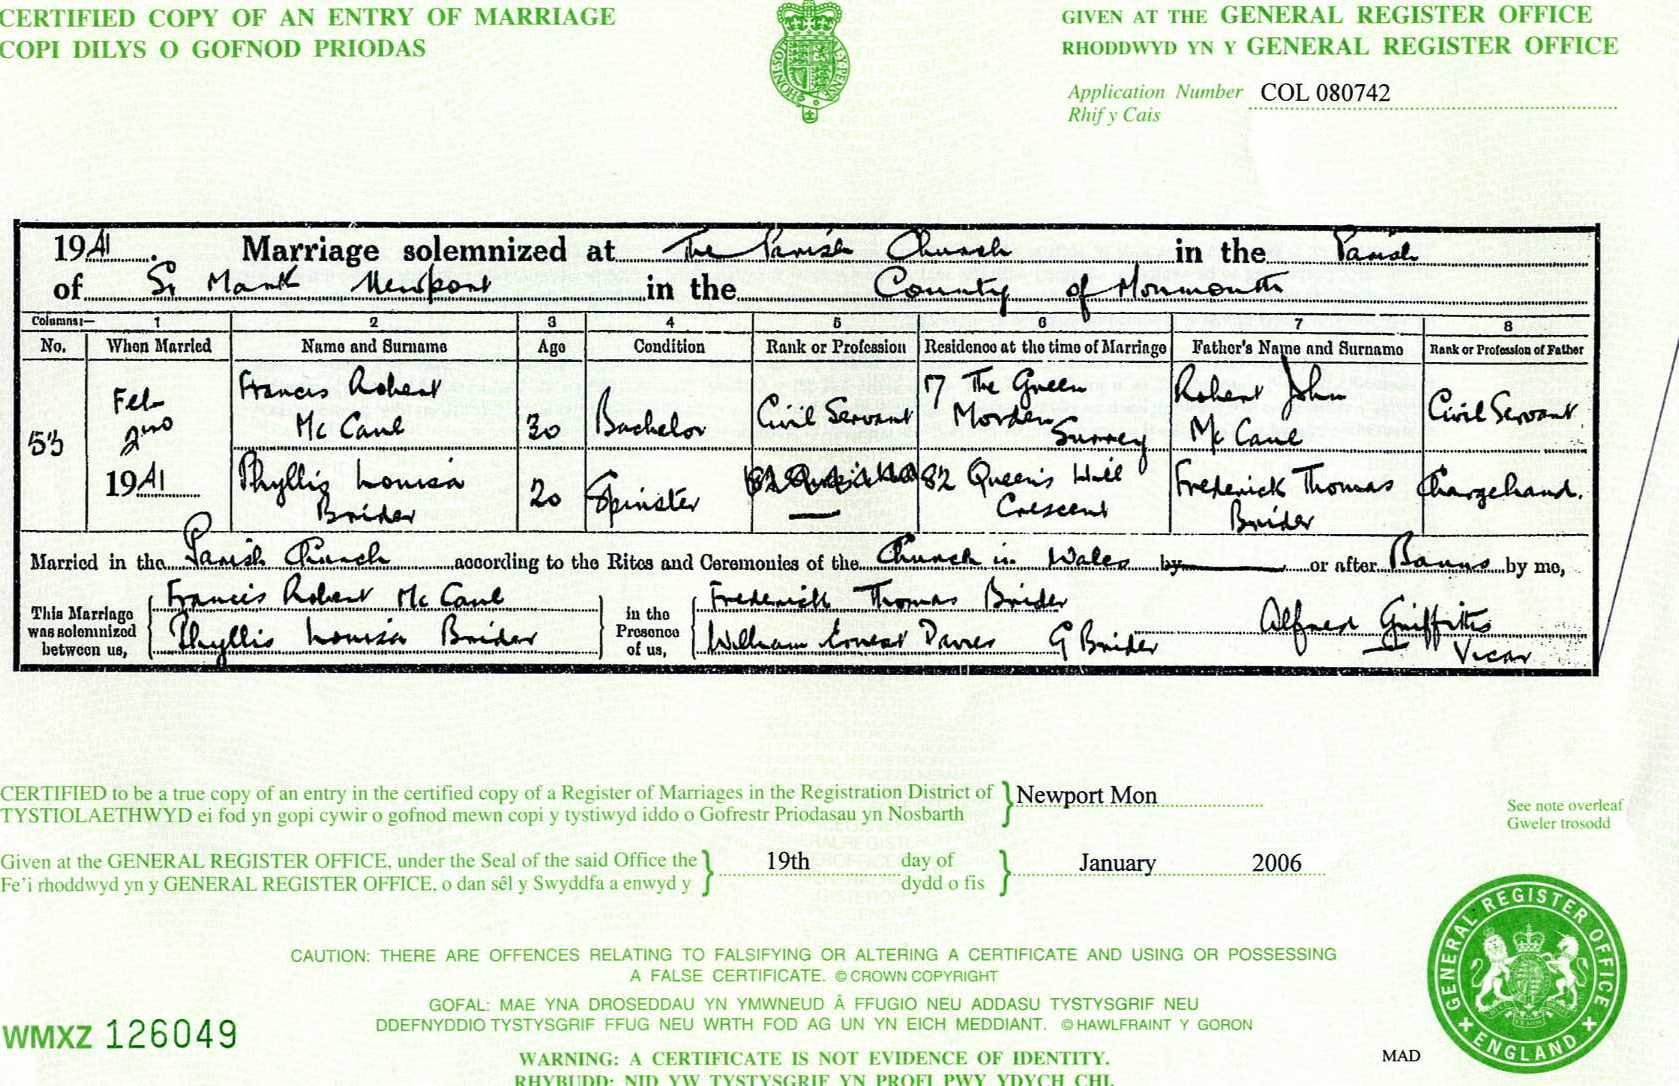 CERTIFIED COPY OF AN ENTRY OF MARRIAGE
COPI DILYS O GOFNOD PRIODAS
GIVEN AT THE GENERAL REGISTER OFFICE
RHODDWYD YN Y GENERAL REGISTER OFFICE
Application Number COL 080742
Rhif y Cais
1941. Marriage solemnized at The Parish Church in the Parish
of St Mark Newport in the County of Monmouth
Columns:— 1 2 3 4 5 6 7 8
No. When Married Name and Surname Age Condition Rank or Profession Residence at the time of Marriage Father's Name and Surname Rank or Profession of Father
53 Feb 2nd 1941
Francis Robert Mc Cave 30 Bachelor Civil Servant 17 The Green Morden Surrey Robert John Mc Cave Civil Servant
Phyllis Louisa Brider 20 Spinster — 82 Queen's Hill Crescent Frederick Thomas Brider Chargehand.
Married in the Parish Church according to the Rites and Ceremonies of the Church in Wales by or after Banns by me,
This Marriage was solemnized between us, Francis Robert Mc Cave Phyllis Louisa Brider
in the Presence of us, Frederick Thomas Brider William Ernest Davies G Brider
Alfred Griffiths
Vicar
CERTIFIED to be a true copy of an entry in the certified copy of a Register of Marriages in the Registration District of Newport Mon
TYSTIOLAETHWYD ei fod yn gopi cywir o gofnod mewn copi y tystiwyd iddo o Gofrestr Priodasau yn Nosbarth
See note overleaf
Gweler trosodd
Given at the GENERAL REGISTER OFFICE, under the Seal of the said Office the 19th day of January 2006
Fe'i rhoddwyd yn y GENERAL REGISTER OFFICE, o dan sêl y Swyddfa a enwyd y dydd o fis
CAUTION: THERE ARE OFFENCES RELATING TO FALSIFYING OR ALTERING A CERTIFICATE AND USING OR POSSESSING
A FALSE CERTIFICATE. © CROWN COPYRIGHT
GOFAL: MAE YNA DROSEDDAU YN YMWNEUD Â FFUGIO NEU ADDASU TYSTYSGRIF NEU
DDEFNYDDIO TYSTYSGRIF FFUG NEU WRTH FOD AG UN YN EICH MEDDIANT. © HAWLFRAINT Y GORON
WMXZ 126049
WARNING: A CERTIFICATE IS NOT EVIDENCE OF IDENTITY.
RHYBUDD: NID YW TYSTYSGRIF YN PROFI PWY YDYCH CHI.
MAD
GENERAL REGISTER OFFICE
ENGLAND